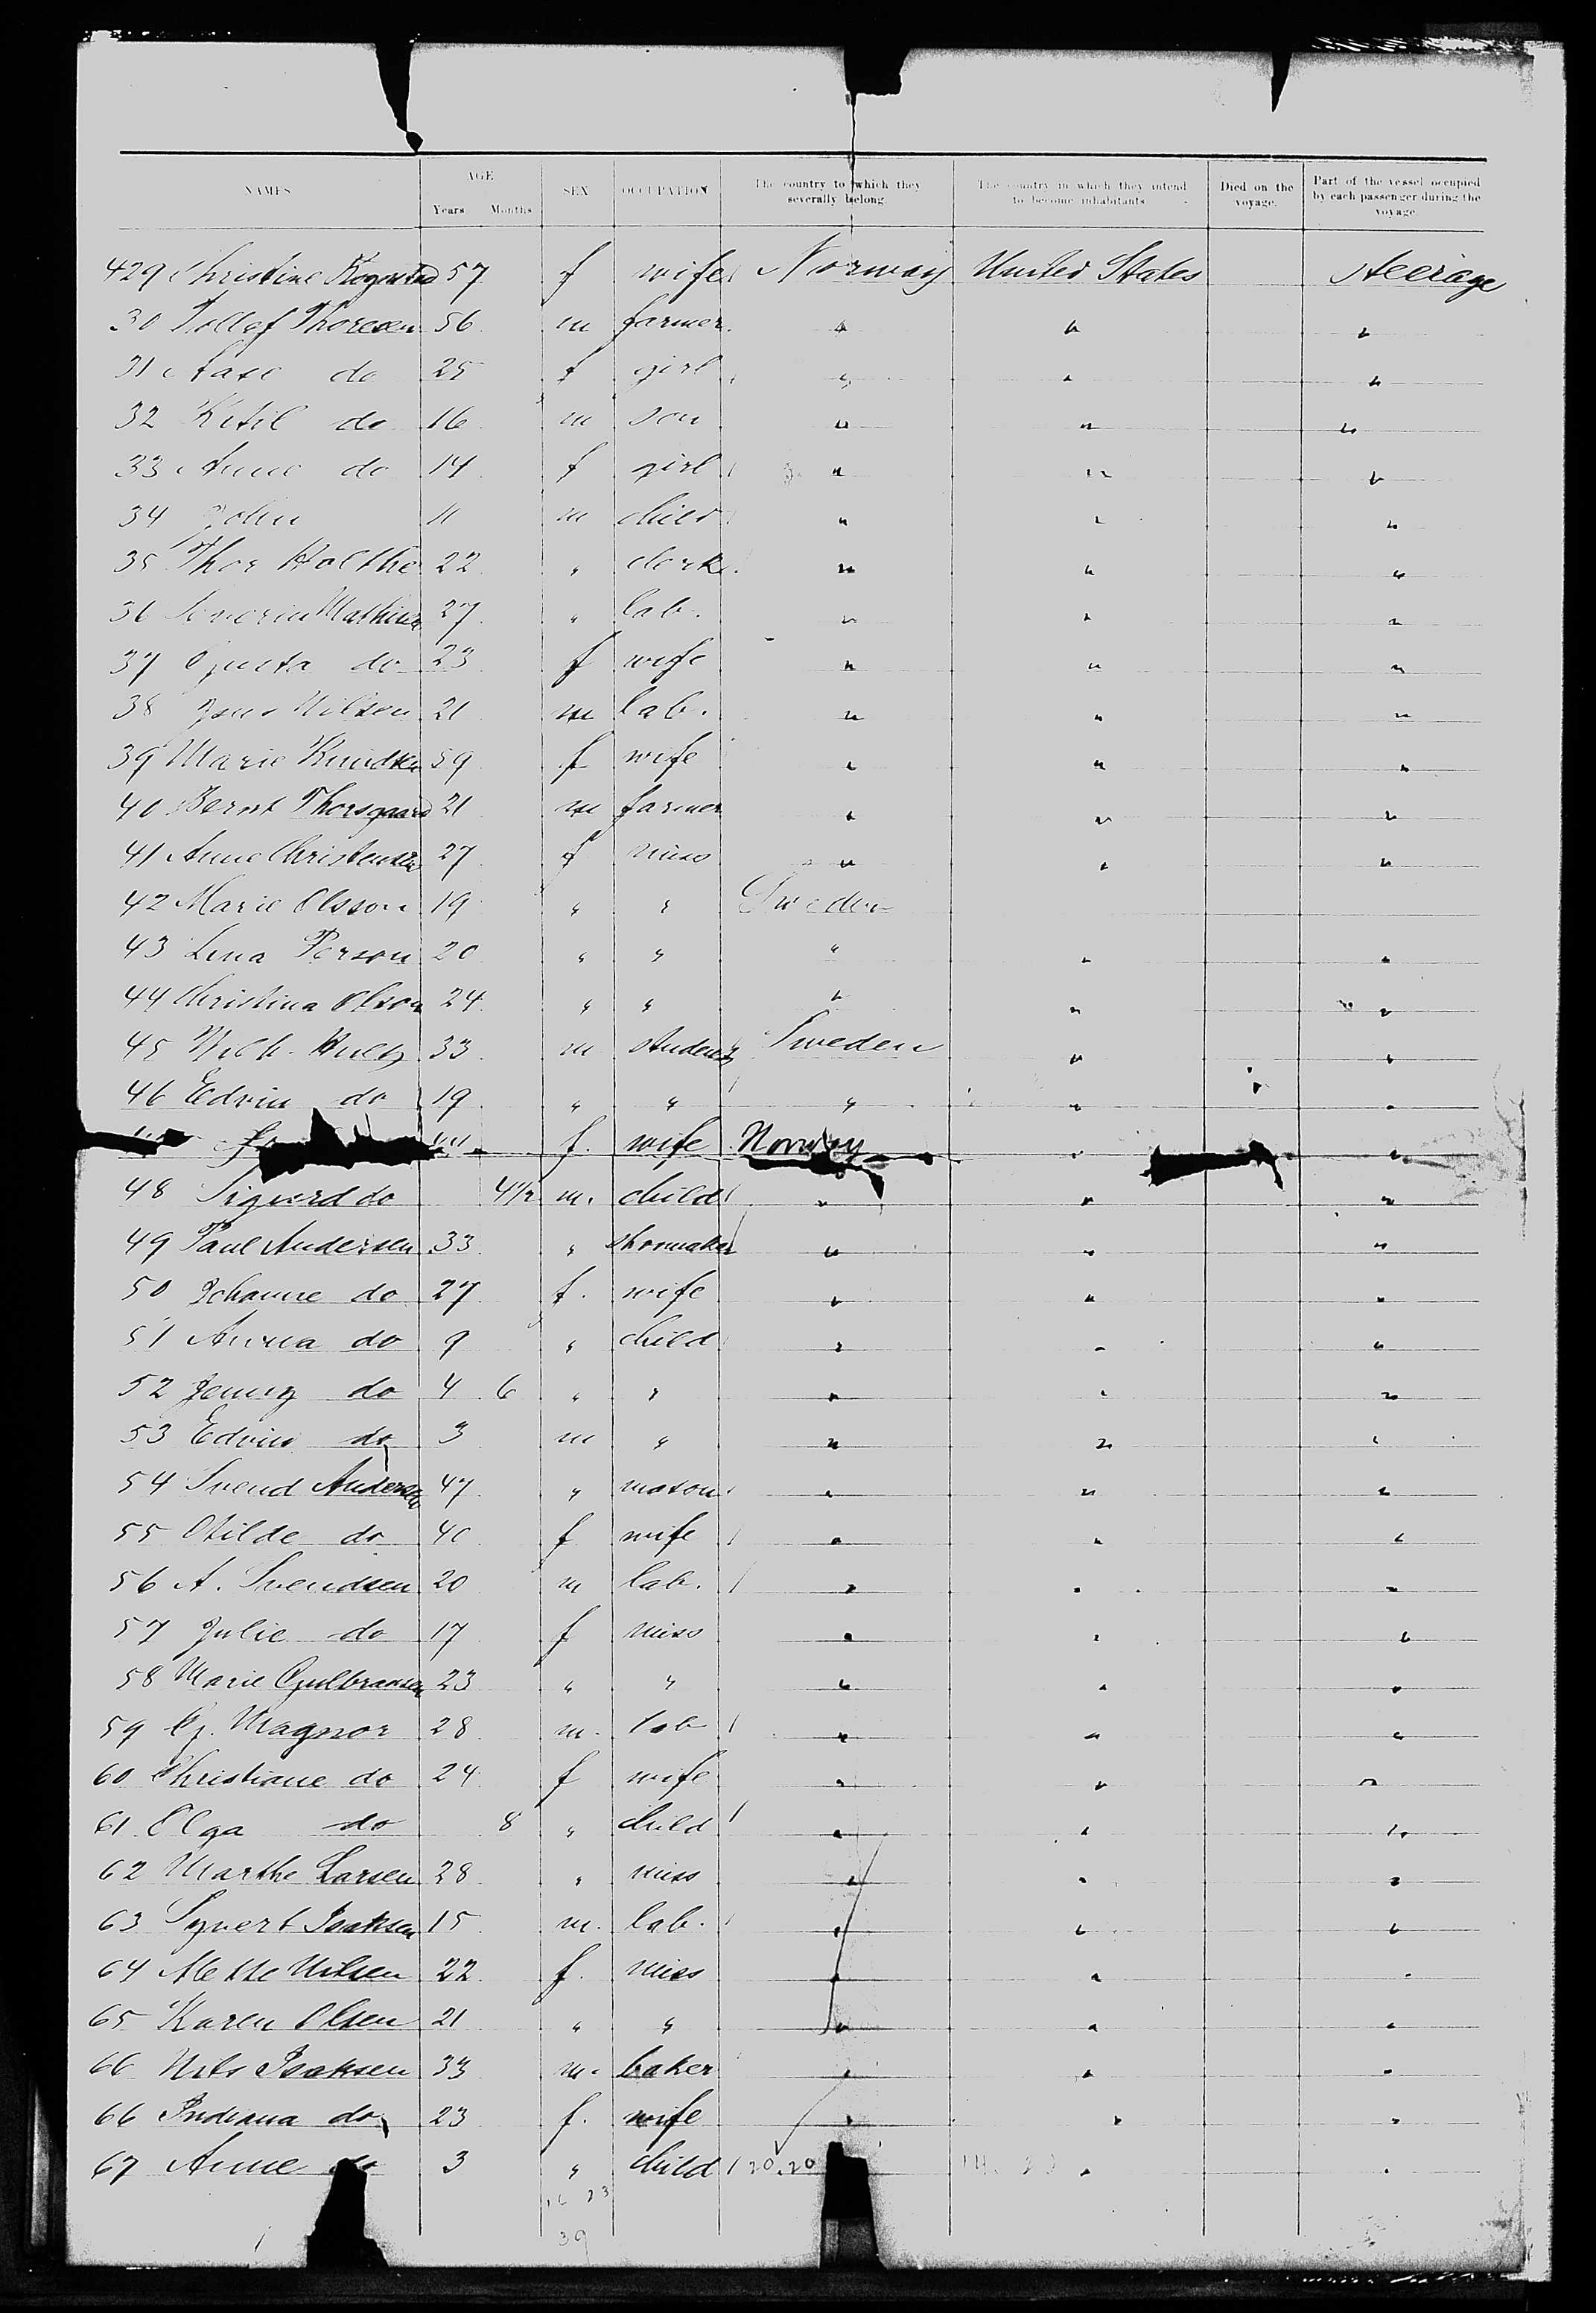 NAMES AGE Years Months SEX OCCUPATION The country to which they severally belong. The country in which they intend to become inhabitants Died on the voyage. Part of the vessel occupied by each passenger during the voyage.
429 Christine 57 f wife Norway United States Steerage
30 Tollef Thoresen 56 m farmer " " "
31 Aase do 25 f girl " " "
32 Ketil do 16 m son " " "
33 Anne do 14 f girl " " "
34 John 11 m child " " "
35 Thor Holthe 22 " clerk " " "
36 27 " lab. " " "
37 do 23 f wife " " "
38 Jens Nilsen 21 m lab. " " "
39 Marie Knudsen 59 f wife " " "
40 Bernt Thorsgaard 21 m farmer " " "
41 Anne Christensen 27 f miss " " "
42 Marie Olsson 19 " " Sweden
43 Lina Person 20 " " " " "
44 Christina Olson 24 " " " " "
45 33 m student Sweden " "
46 Edvin do 19 " " " " "
f. wife Norway " "
48 Sigurd do 4½ m. child " " "
49 Paul Andersen 33 " shoemaker " " "
50 Johanne do 27 f. wife " " "
51 Anna do 9 " child " " "
52 Jenny do 4 6 " " " " "
53 Edvin do 3 m " " " "
54 Svend Andersen 47 " mason " " "
55 Otilde do 40 f wife " " "
56 A. Svendsen 20 m lab. " " "
57 Julie do 17 f miss " " "
58 Marie Gulbransen 23 " " " " "
59 G. Magnor 28 m. lab " " "
60 Christiane do 24 f wife " " "
61 Olga do 8 " child " " "
62 Marthe Larsen 28 " miss " " "
63 Syvert Isaksen 15 m. lab. " " "
64 Mette Nilsen 22 f. miss " " "
65 Karen Olsen 21 " " " " "
66 Nils Isaksen 33 m. baker " " "
66 Indiana do 23 f. wife " " "
67 Anne do 3 " child 20.20 " "
16 23
39